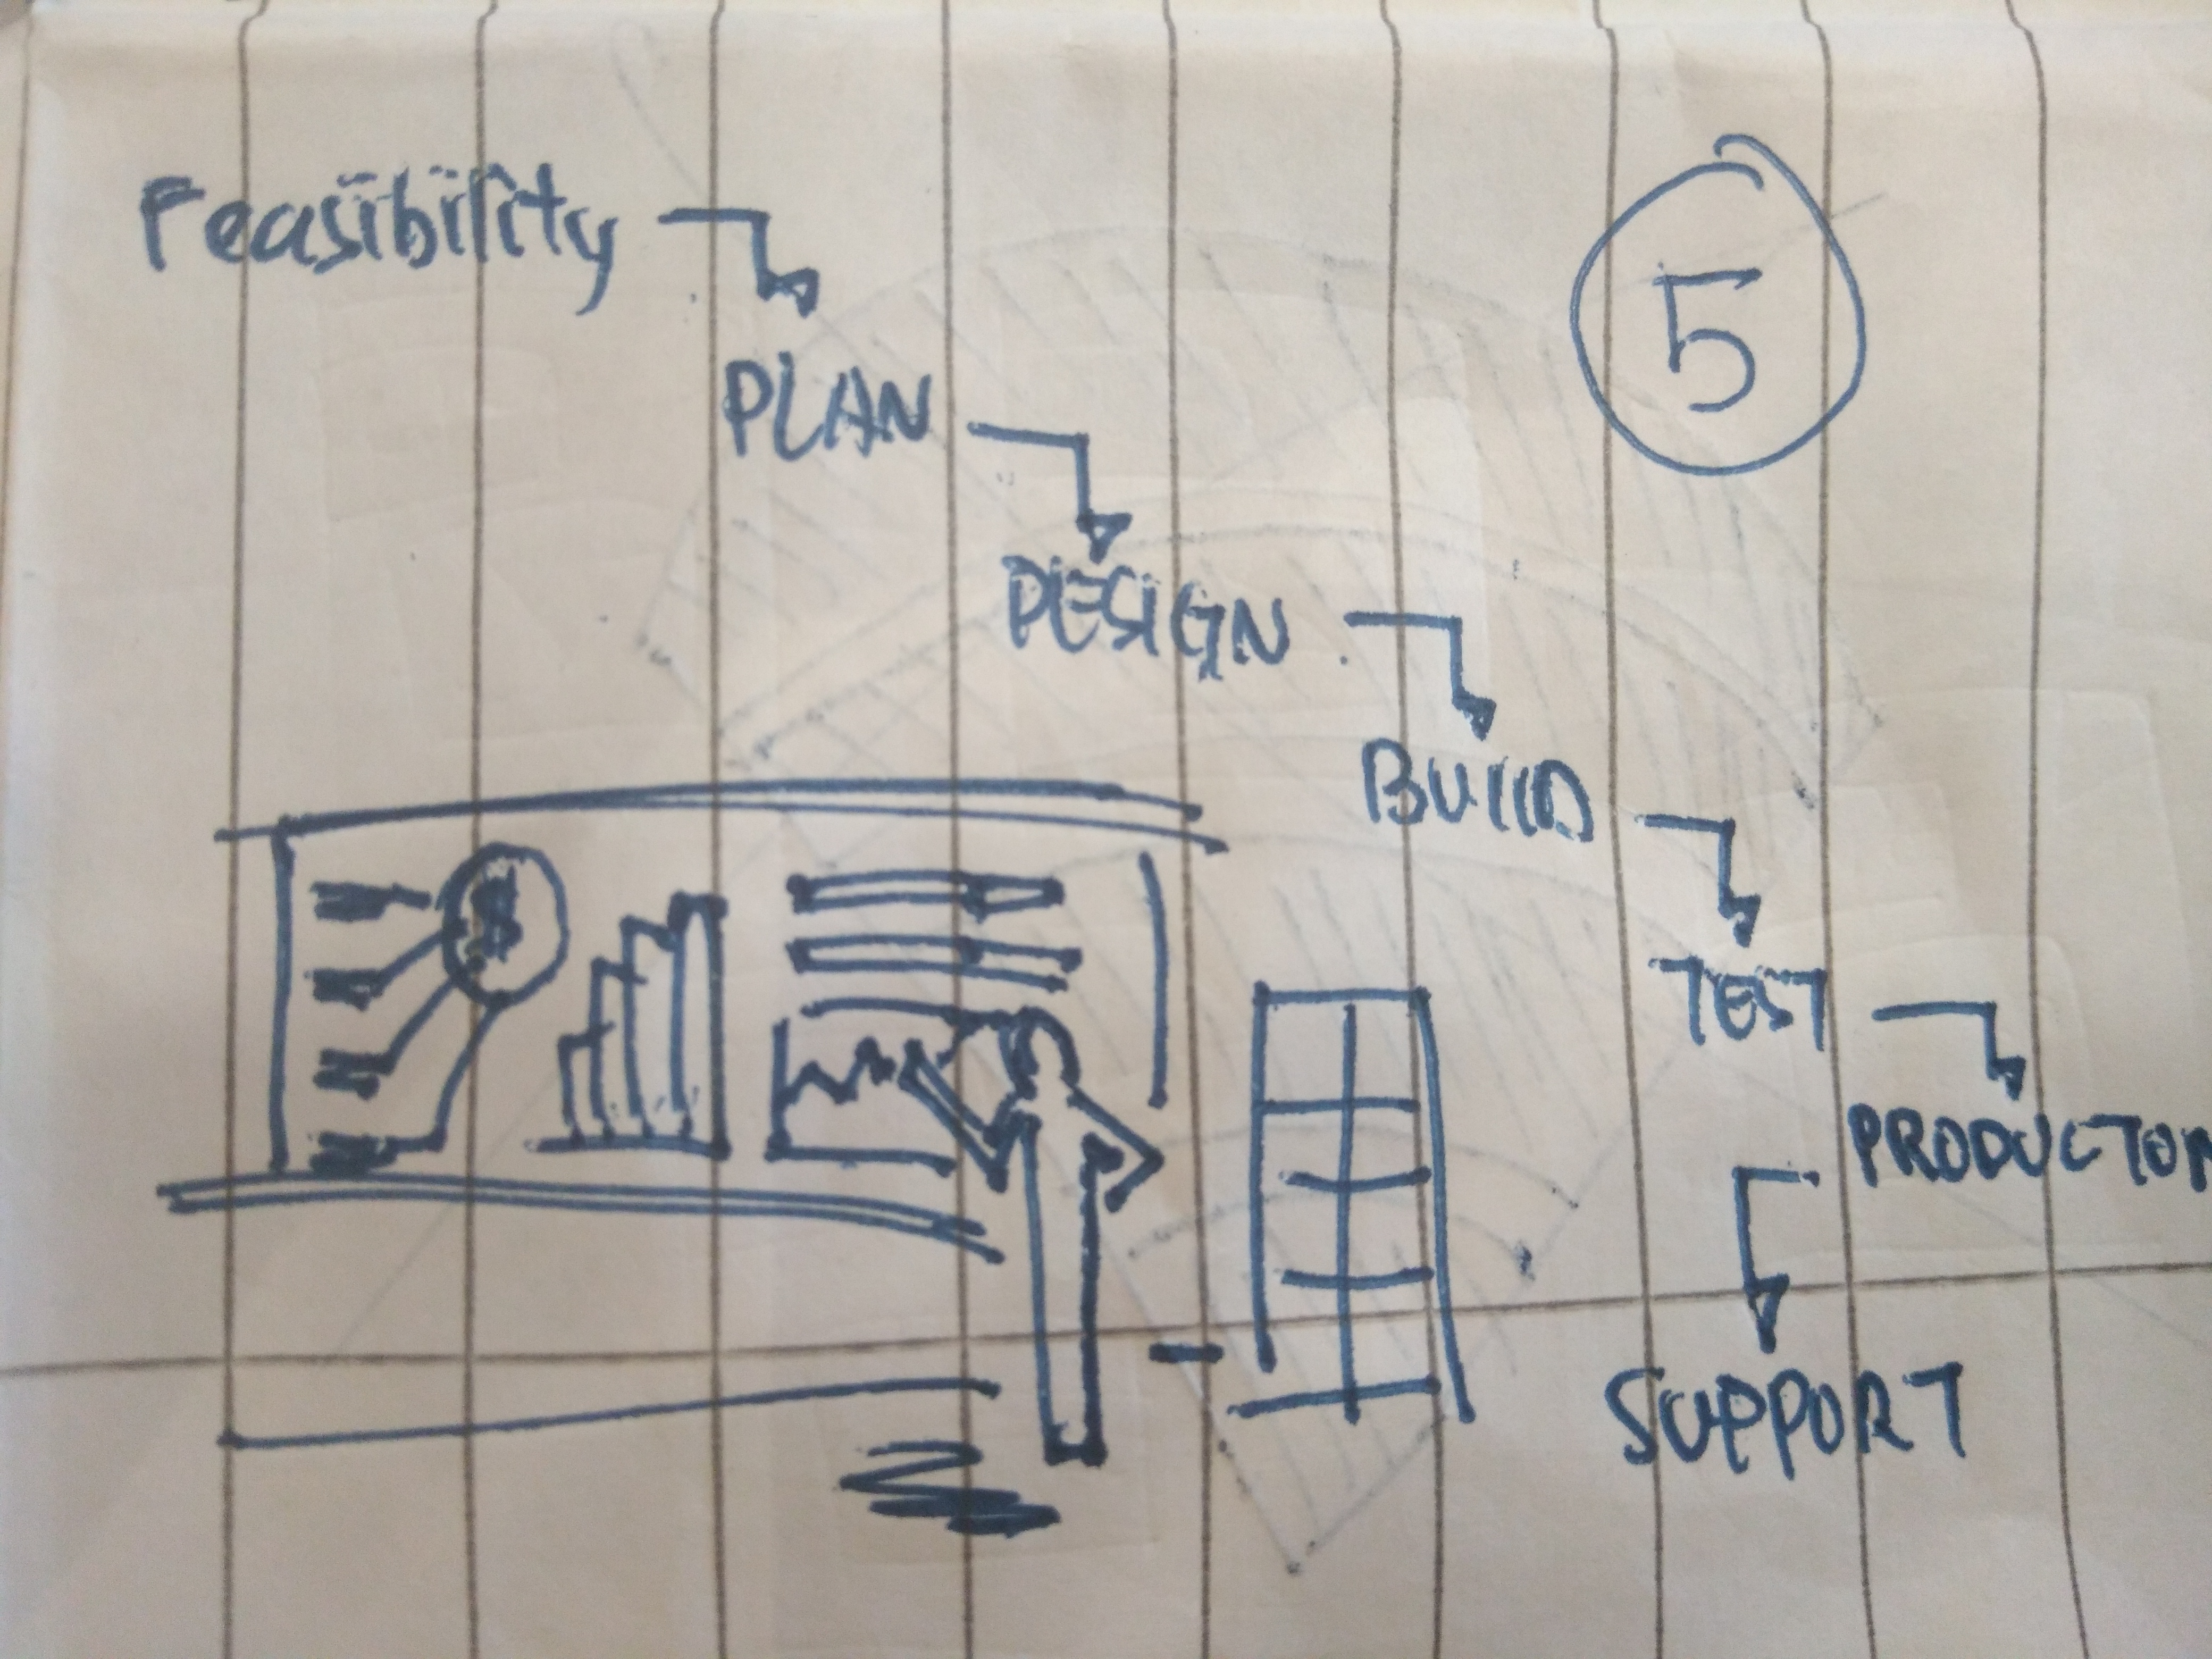 Feasibility
5
PLAN
DESIGN
BUILD
$
TEST
PRODUCTON
SUPPORT